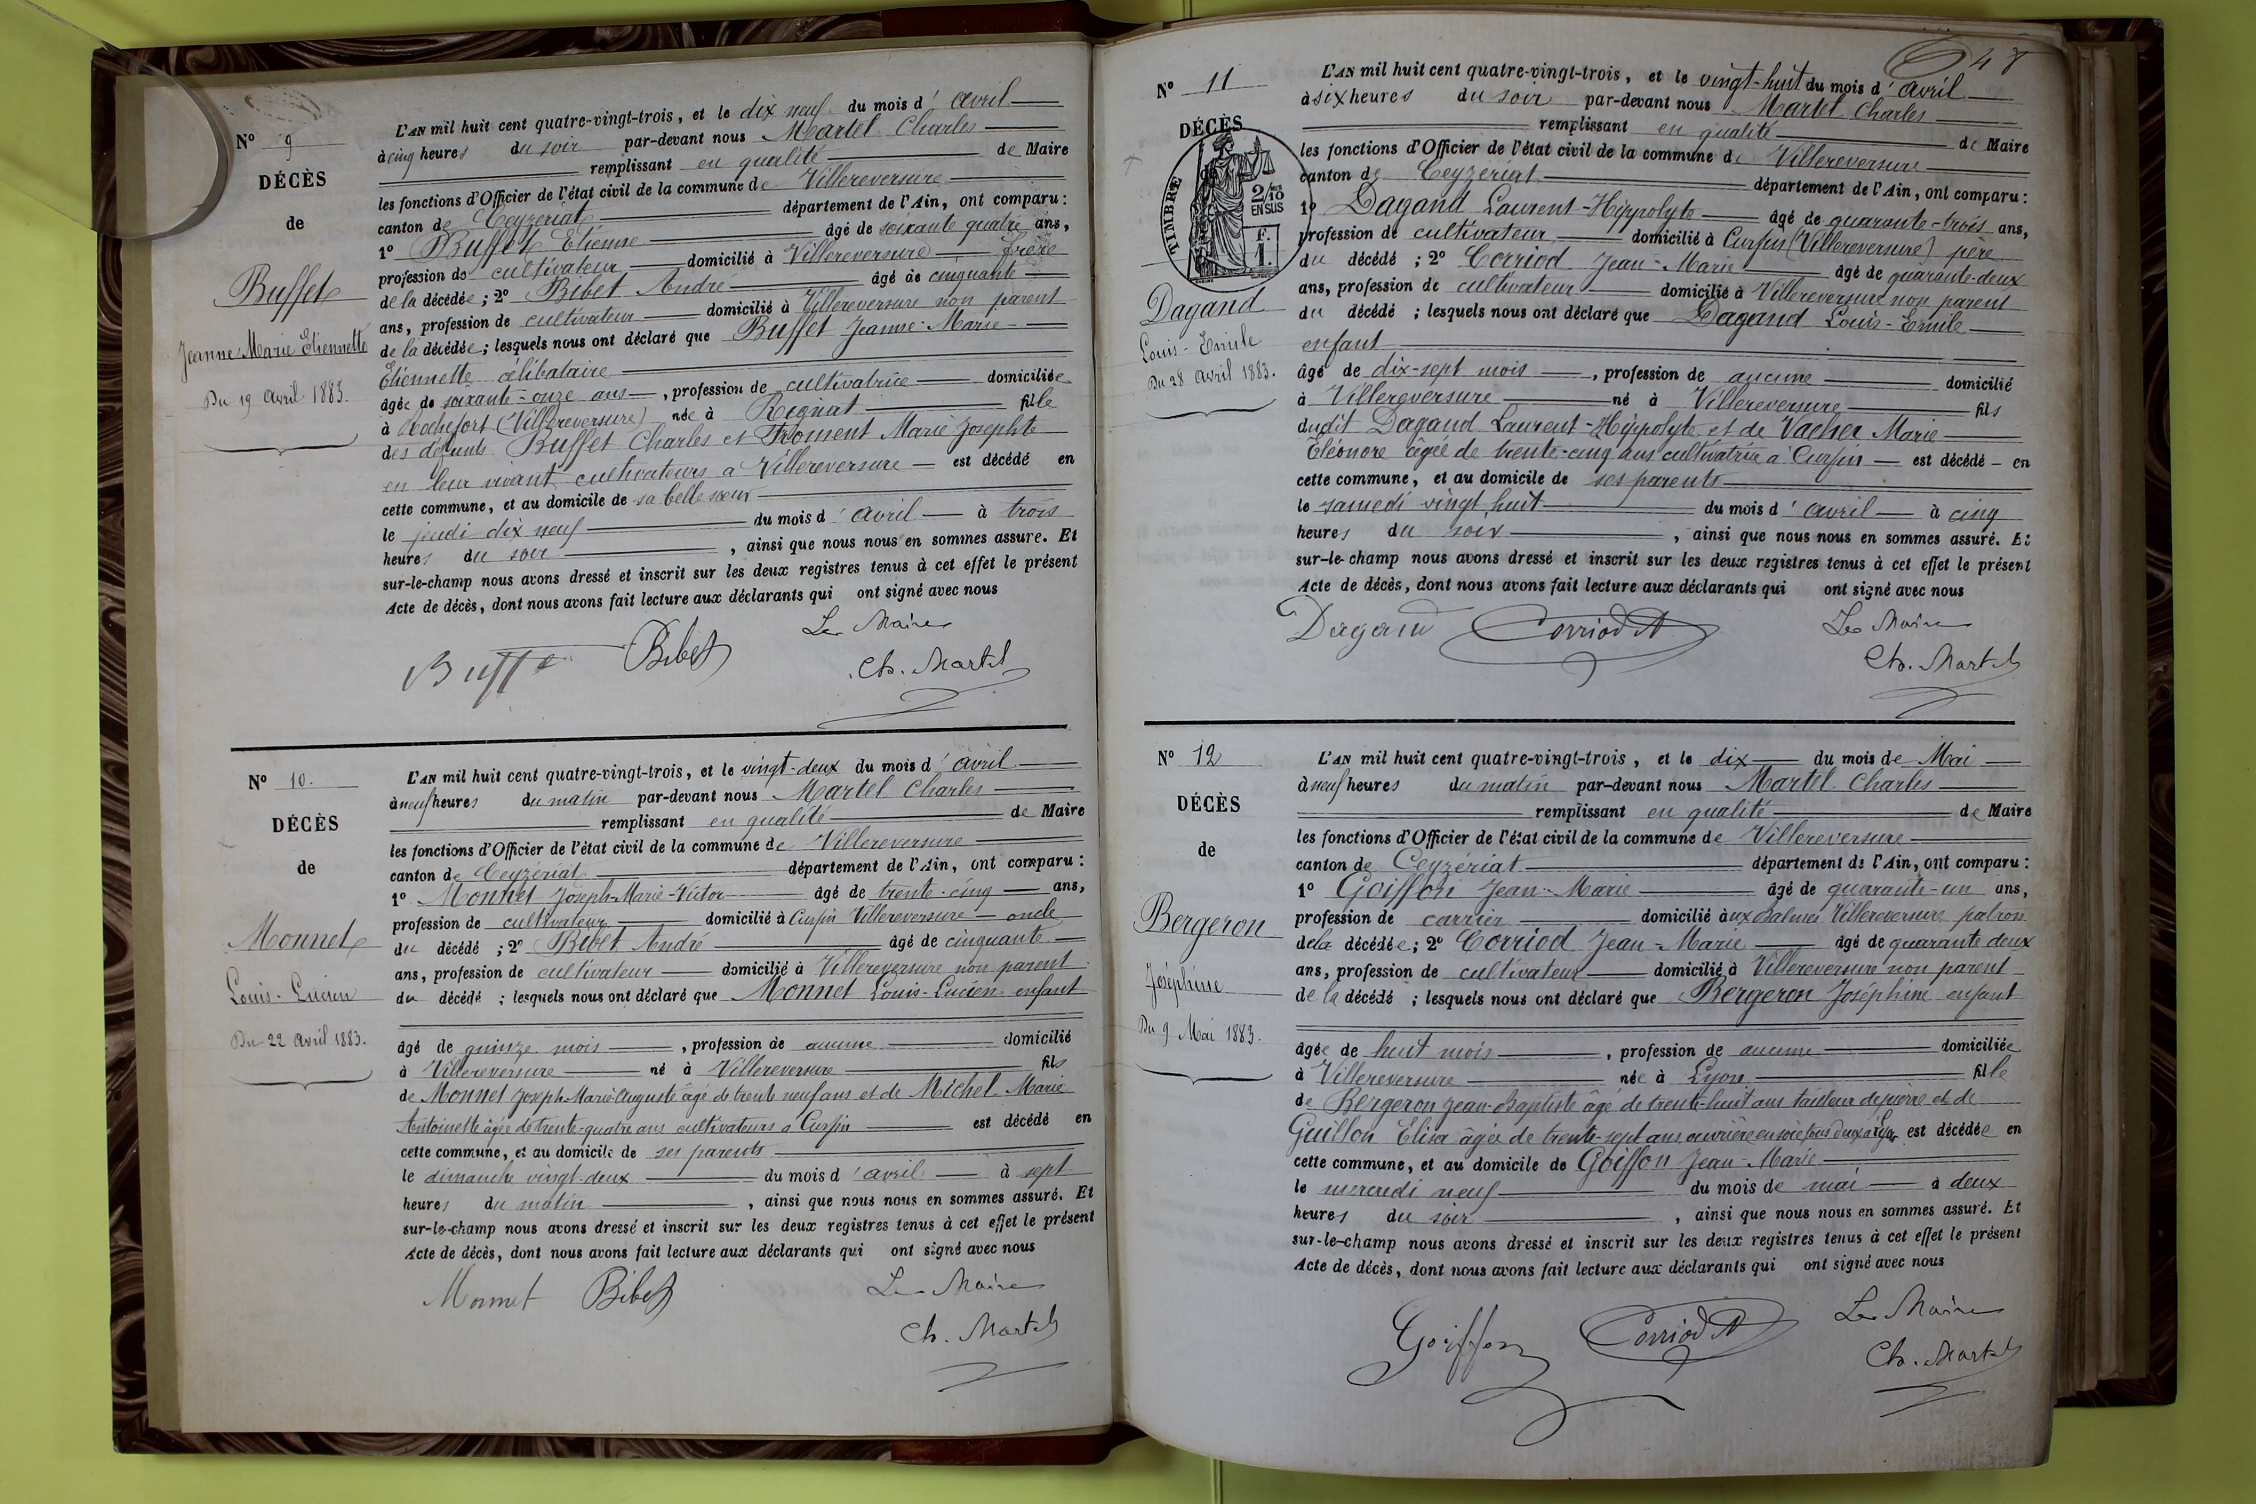 N° 9
DÉCÈS
de
Buffet
Jeanne-Marie Etiennette
Du 19 Avril 1883.
L'AN mil huit cent quatre-vingt-trois, et le dix neuf du mois d'avril
à cinq heures du soir par-devant nous Martel Charles
remplissant en qualité de Maire
les fonctions d'Officier de l'état civil de la commune de Villereversure
canton de Ceyzériat département de l'Ain, ont comparu :
1° Buffet Etienne âgé de soixante quatre ans,
profession de cultivateur domicilié à Villereversure frère
de la décédée ; 2° Bibet André âgé de cinquante
ans, profession de cultivateur domicilié à Villereversure non parent
de la décédée ; lesquels nous ont déclaré que Buffet Jeanne-Marie-
Etiennette célibataire
âgée de soixante-onze ans, profession de cultivatrice domiciliée
à Rochefort (Villereversure) née à Rignat fille
des défunts Buffet Charles et Froment Marie Josephte
en leur vivant cultivateurs a Villereversure est décédé en
cette commune, et au domicile de sa belle sœur
le jeudi dix neuf du mois d'avril à trois
heures du soir, ainsi que nous nous en sommes assuré. Et
sur-le-champ nous avons dressé et inscrit sur les deux registres tenus à cet effet le présent
Acte de décès, dont nous avons fait lecture aux déclarants qui ont signé avec nous
Le Maire
Buffet Bibet
Ch. Martel
N° 10.
DÉCÈS
de
Monnet
Louis-Lucien
Du 22 Avril 1883.
L'AN mil huit cent quatre-vingt-trois, et le vingt-deux du mois d'avril
à neuf heures du matin par-devant nous Martel Charles
remplissant en qualité de Maire
les fonctions d'Officier de l'état civil de la commune de Villereversure
canton de Ceyzériat département de l'Ain, ont comparu :
1° Monnet Joseph-Marie-Victor âgé de trente-cinq ans,
profession de cultivateur domicilié à Curfin Villereversure oncle
du décédé ; 2° Bibet André âgé de cinquante
ans, profession de cultivateur domicilié à Villereversure non parent
du décédé ; lesquels nous ont déclaré que Monnet Louis-Lucien enfant
âgé de quinze mois, profession de aucune domicilié
à Villereversure né à Villereversure fils
de Monnet Joseph-Marie-Auguste âgé de trente neuf ans et de Michel Marie
Antoinette âgée de trente-quatre ans cultivateurs a Curfin est décédé en
cette commune, et au domicile de ses parents
le dimanche vingt-deux du mois d'avril à sept
heures du matin, ainsi que nous nous en sommes assuré. Et
sur-le-champ nous avons dressé et inscrit sur les deux registres tenus à cet effet le présent
Acte de décès, dont nous avons fait lecture aux déclarants qui ont signé avec nous
Monnet Bibet Le Maire
Ch. Martel
48
N° 11
DÉCÈS
TIMBRE
2/10 EN SUS
F.
1.
Dagand
Louis-Emile
Du 28 Avril 1883.
L'AN mil huit cent quatre-vingt-trois, et le vingt-huit du mois d'avril
à six heures du soir par-devant nous Martel Charles
remplissant en qualité de Maire
les fonctions d'Officier de l'état civil de la commune de Villereversure
canton de Ceyzériat département de l'Ain, ont comparu :
1° Dagand Laurent-Hippolyte âgé de quarante-trois ans,
profession de cultivateur domicilié à Curfin (Villereversure) père
du décédé ; 2° Corriod Jean-Marie âgé de quarante-deux
ans, profession de cultivateur domicilié à Villereversure non parent
du décédé ; lesquels nous ont déclaré que Dagand Louis-Emile
enfant
âgé de dix-sept mois, profession de aucune domicilié
à Villereversure né à Villereversure fils
dudit Dagand Laurent-Hippolyte et de Vacher Marie
Éléonore âgée de trente-cinq ans cultivatrice a Curfin est décédé en
cette commune, et au domicile de ses parents
le samedi vingt huit du mois d'avril à cinq
heures du soir, ainsi que nous nous en sommes assuré. Et
sur-le-champ nous avons dressé et inscrit sur les deux registres tenus à cet effet le présent
Acte de décès, dont nous avons fait lecture aux déclarants qui ont signé avec nous
Dagand Corriod Le Maire
Ch. Martel
N° 12
DÉCÈS
de
Bergeron
Joséphine
Du 9 Mai 1883.
L'AN mil huit cent quatre-vingt-trois, et le dix du mois de Mai
à neuf heures du matin par-devant nous Martel Charles
remplissant en qualité de Maire
les fonctions d'Officier de l'état civil de la commune de Villereversure
canton de Ceyzériat département de l'Ain, ont comparu :
1° Goiffon Jean-Marie âgé de quarante-un ans,
profession de carrier domicilié aux Balmes Villereversure patron
de la décédée ; 2° Corriod Jean-Marie âgé de quarante deux
ans, profession de cultivateur domicilié à Villereversure non parent
de la décédé ; lesquels nous ont déclaré que Bergeron Joséphine enfant
âgée de huit mois, profession de aucune domiciliée
à Villereversure née à Lyon fille
de Bergeron Jean-Baptiste âgé de trente-huit ans tailleur de pierre et de
Guillon Élisa âgée de trente-sept ans ouvrière en soie tous deux à Lyon est décédée en
cette commune, et au domicile de Goiffon Jean-Marie
le mercredi neuf du mois de mai à deux
heures du soir, ainsi que nous nous en sommes assuré. Et
sur-le-champ nous avons dressé et inscrit sur les deux registres tenus à cet effet le présent
Acte de décès, dont nous avons fait lecture aux déclarants qui ont signé avec nous
Goiffon Corriod Le Maire
Ch. Martel